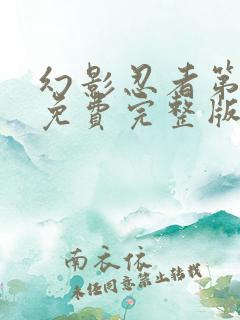 幻影忍者第
免費完整版
南衣依
未经同意禁止转载